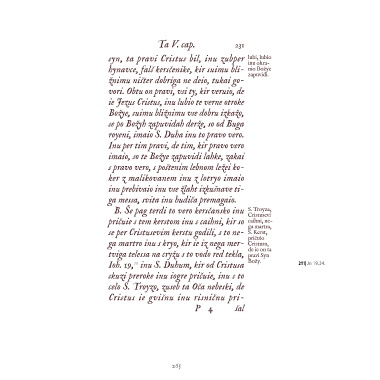 Ta V. cap.
231
syn, ta pravi Cristus bil, inu zubper
hynavce, falš kersčenike, kir suimu bli-
žnimu ništer dobriga ne deio, tukai go-
vori. Obtu on pravi, vsi ty, kir veruio, de
ie Jezus Cristus, inu lubio te verne otroke
Božye, suimu bližnimu vse dobru izkažo,
se po Božyh zapuvidah derže, so od Buga
royeni, imaio S. Duha inu to pravo vero.
Inu per tim pravi, de tim, kir pravo vero
imaio, so te Božye zapuvidi lahke, zakai
s pravo vero, s poštenim lebnom ležei ka-
ker z malikovanem inu z lotryo imaio
inu prebivaio inu vse žlaht izkušnave ti-
ga messa, svita inu hudiča premagaio.
B. Še pag terdi to vero kersčansko inu
pričuie s tem kerstom inu s caihni, kir so
se per Cristusevim kerstu godili, s to ne-
ga martro inu s kryo, kir ie iz nega mer-
tviga telessa na cryžu s to vodo red tekla,
Ioh. 19, inu S. Duhum, kir od Cristusa
skuzi preroke inu iogre pričuie, inu s to
celo S. Troyzo, zuseb ta Oča nebeski, de
Cristus ie gvišnu inu risničnu pri-
P 4
šal
lubi, lubio
inu ohra-
nio Božye
zapuvidi.
S. Troyza,
Cristusevi
caihni, ne-
ga martra,
S. Kerst,
pričuio
Cristusa,
de ie on ta
pravi Syn
Božy.
211 Jn 19,34.
265